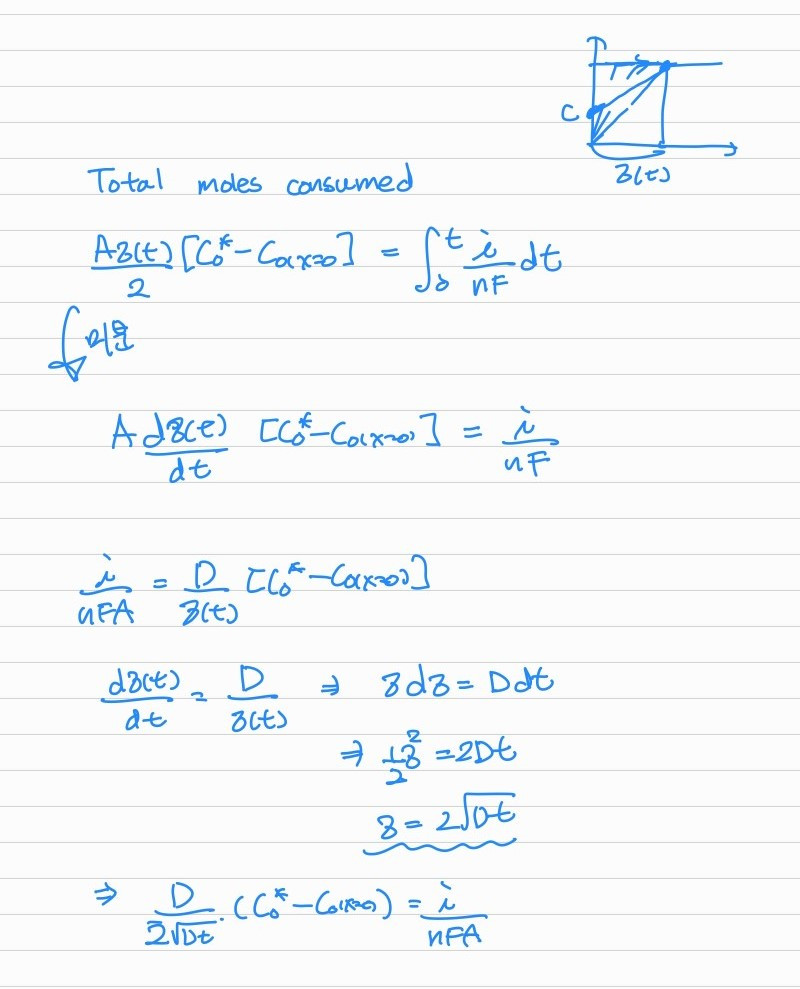 C
δ(t)
Total moles consumed
Aδ(t)/2 [C₀* − C₀(x=0)] = ∫₀ᵗ i/nF dt
미분
A dδ(t)/dt [C₀* − C₀(x=0)] = i/nF
i/nFA = D/δ(t) [C₀* − C₀(x=0)]
dδ(t)/dt = D/δ(t) ⇒ δdδ = Ddt
⇒ 1/2 δ² = 2Dt
δ = 2√Dt
⇒ D/2√Dt · (C₀* − C₀(x=0)) = i/nFA